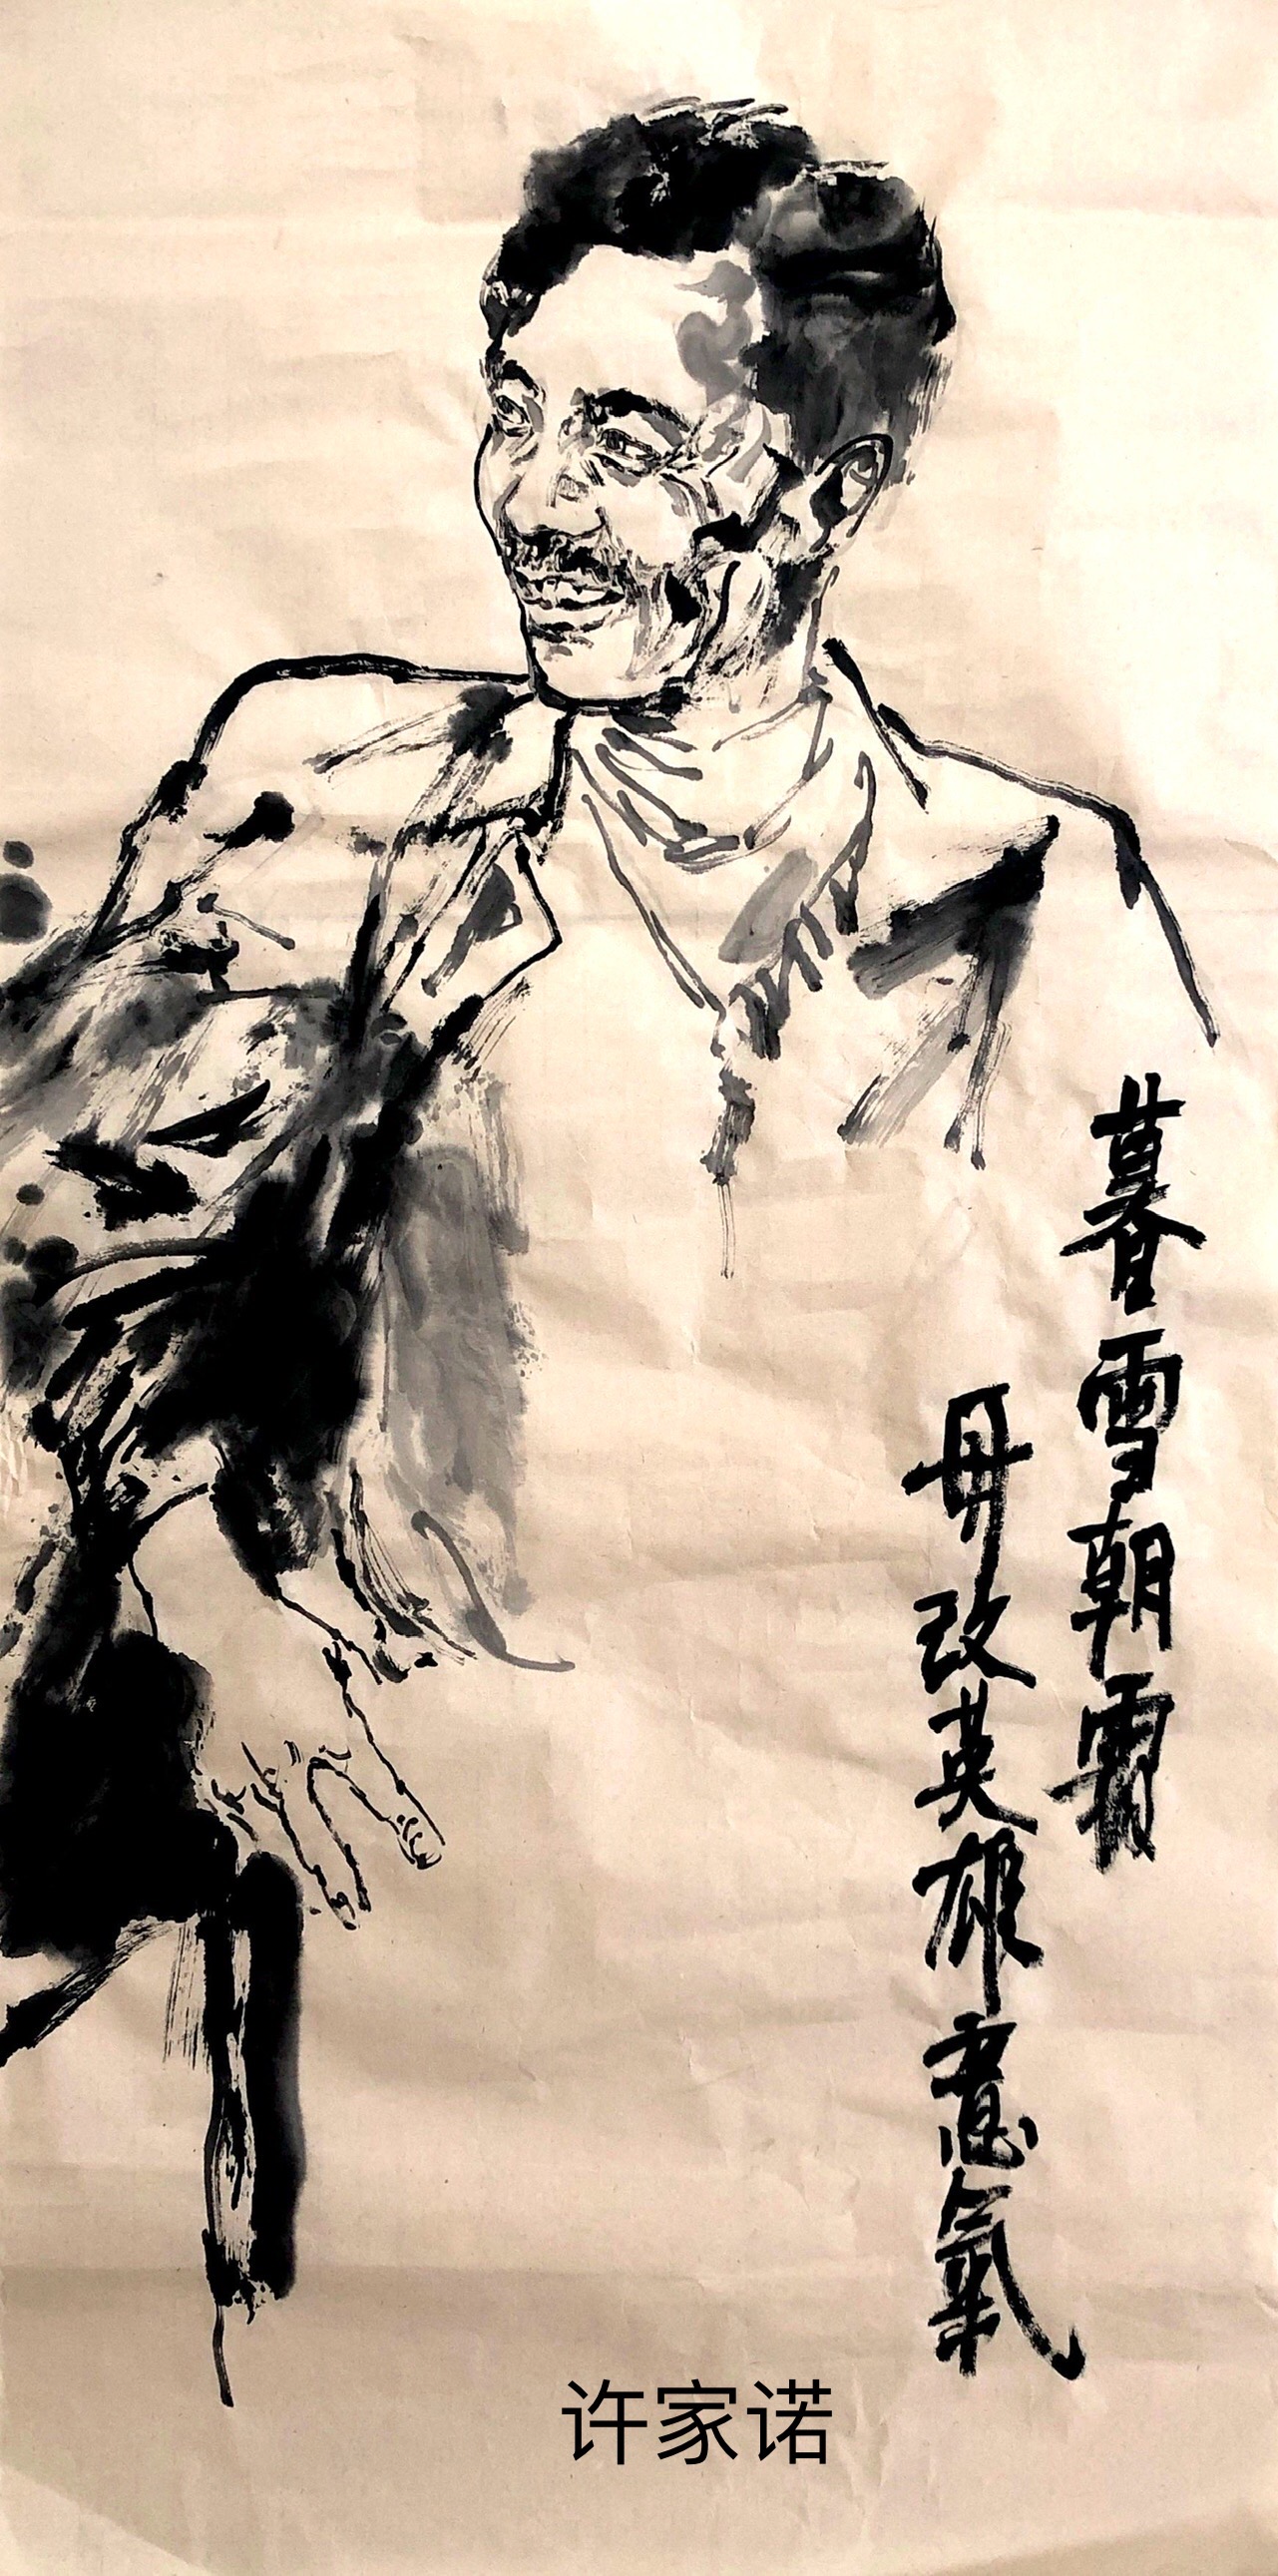 暮雪朝霜
毋改英雄意氣
许家诺